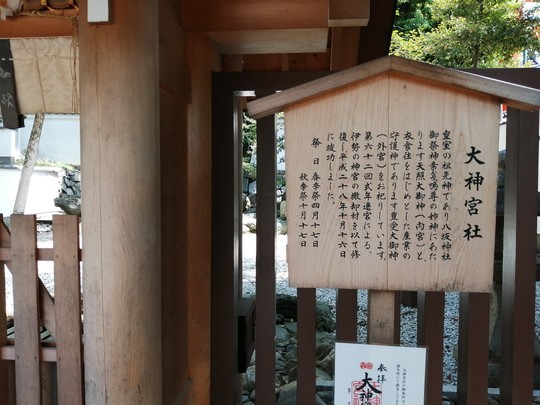 大神宮社
皇室の祖先神であり八坂神社
御祭神素戔嗚尊の姉神にあた
ります天照大御神(内宮)と、
衣食住をはじめとした産業の
守護神であります豊受大御神
(外宮)をお祀りしています。
第六十二回式年遷宮による、
伊勢の神宮の撤却材を以て修
復し平成二十八年十月十六日
に竣功しました。
祭日 春季祭四月十七日
秋季祭十月十七日
奉拝
大神